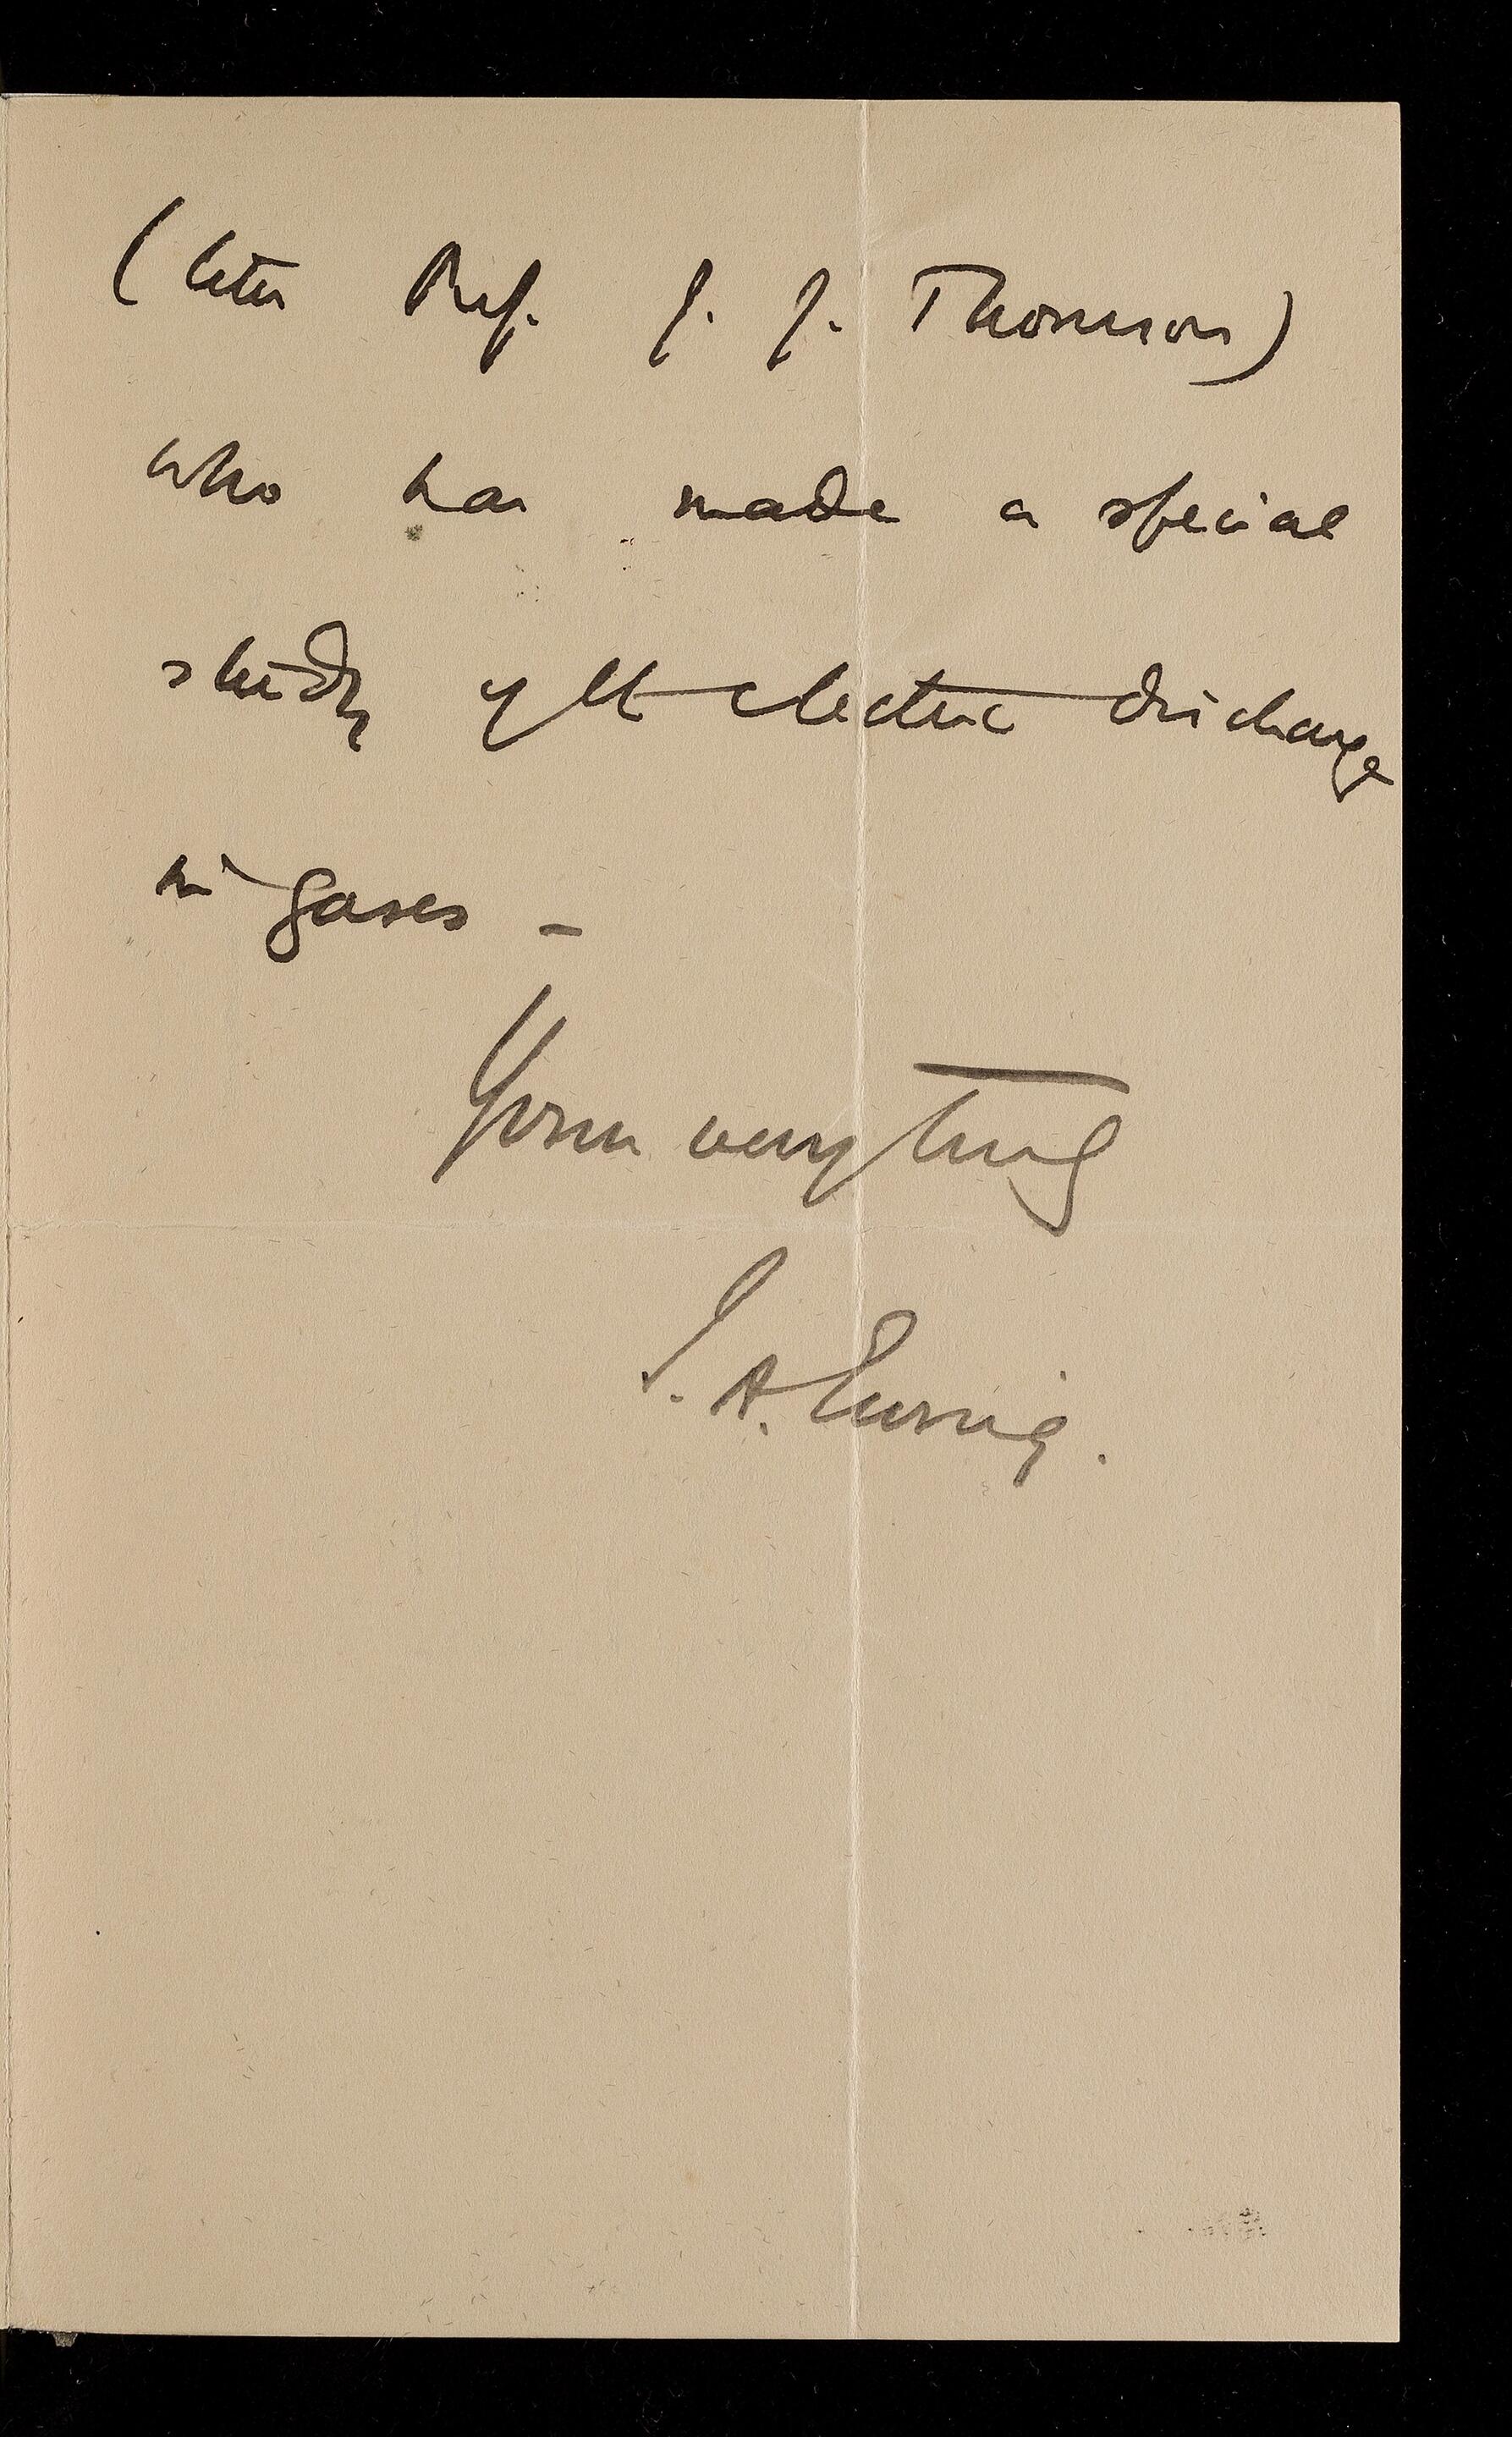 (later Prof. J. J. Thomson)
who has made a special
study of the electric discharge
in gases –
Yours very truly
J. A. Ewing.